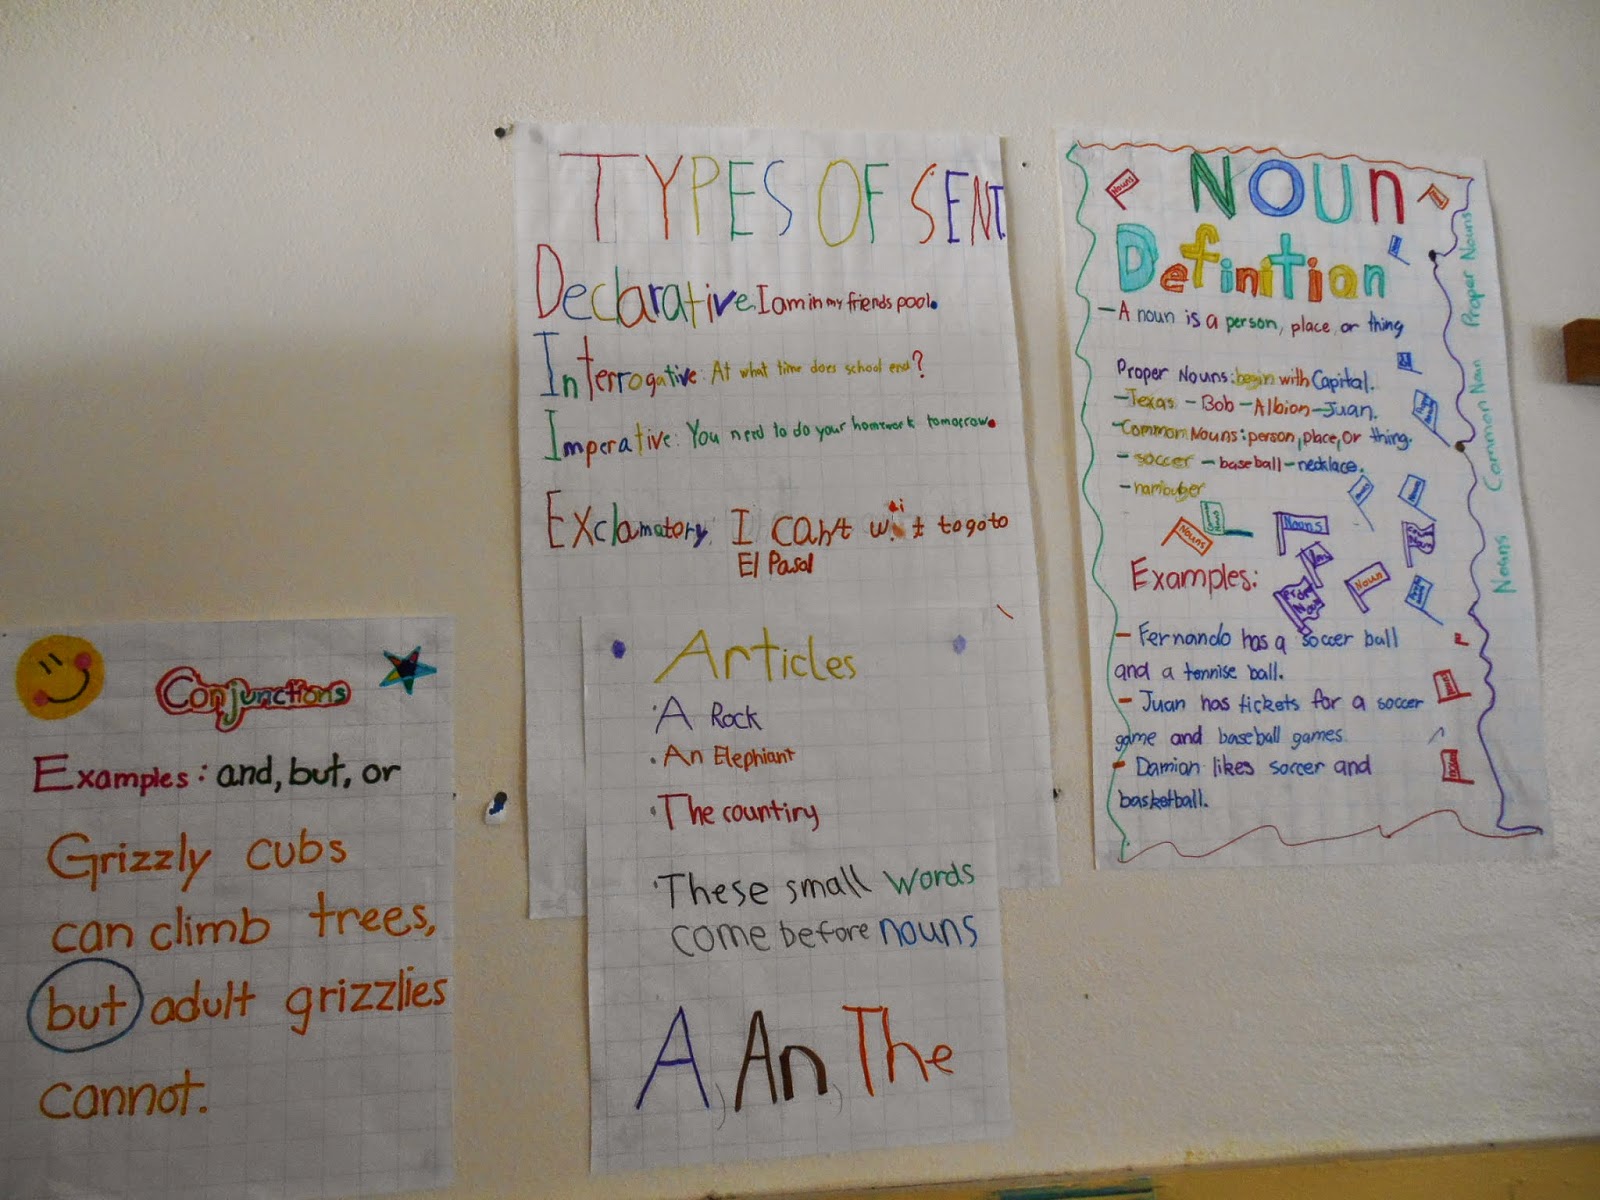 TYPES OF SENT.
Declarative: I am in my friends pool.
Interrogative: At what time does school end?
Imperative: You need to do your homework tomorrow.
Exclamatory: I can't wait to go to
El Paso!
NOUN
Definition
- A noun is a person, place, or thing
Proper Nouns: begin with Capital.
- Texas - Bob - Albion - Juan.
- Common Nouns: person, place, or thing.
- soccer - baseball - necklace.
- hambuger
Examples:
- Fernando has a soccer ball
and a tennise ball.
- Juan has tickets for a soccer
game and baseball games.
- Damian likes soccer and
basketball.
Nouns Common Noun Proper Nouns
Nouns
Nouns
Nouns
Noun
Conjunctions
Examples: and, but, or
Grizzly cubs
can climb trees,
but adult grizzlies
cannot.
Articles
· A Rock
· An Elephiant
· The countiry
· These small words
come before nouns
A, An, The